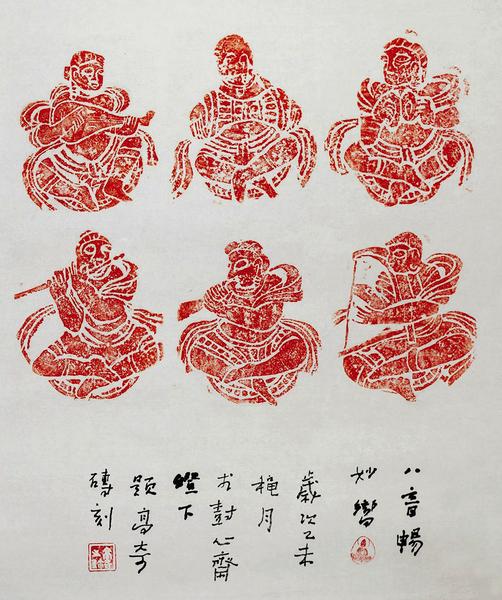 八音暢
妙響
歲次乙未
穐月
於封心齋
燈下
題高奇
磚刻